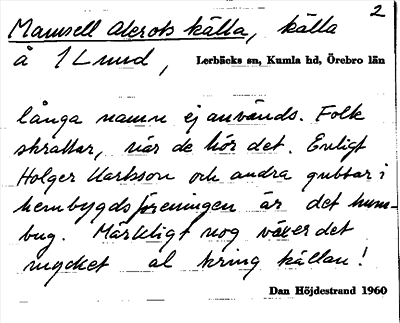 2
Mamsell Akrots källa, källa
å 1 Lund, Lerbäcks sn, Kumla hd, Örebro län
långa namn ej används. Folk
skrattar, när de hör det. Enligt
Holger Karlsson och andra gubbar i
hembygdsföreningen är det hum-
bug. Märkligt nog växer det
mycket al kring källan!
Dan Höjdestrand 1960